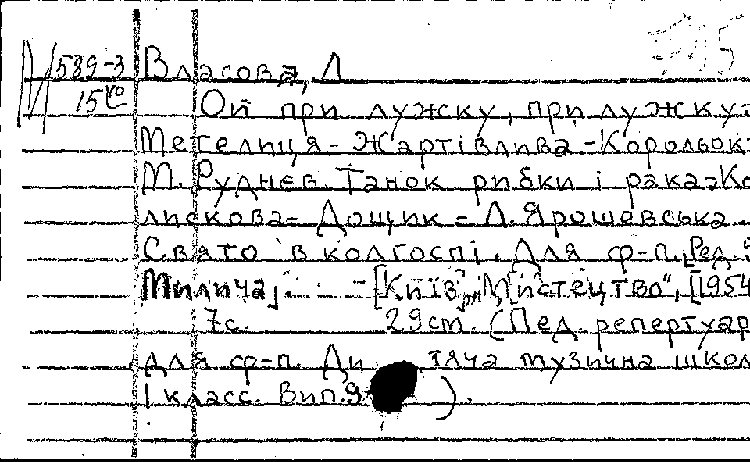 М589-3 Власова, Л
15ко
Ой при лужку, при лужку:
Метелиця - Жартівлива - Корольок-
М. Руднєв. Танок рибки і рака - Ко
лискова - Дощик - Л. Ярошевська
Свято в колгоспі. Для ф-п. [Ред.
Милича]. - [Київ, "Мистецтво", [1954
7с. 29см. (Пед. репертуар
для ф-п. Ди тяча музична школ
I класс. Вип. 9 ).